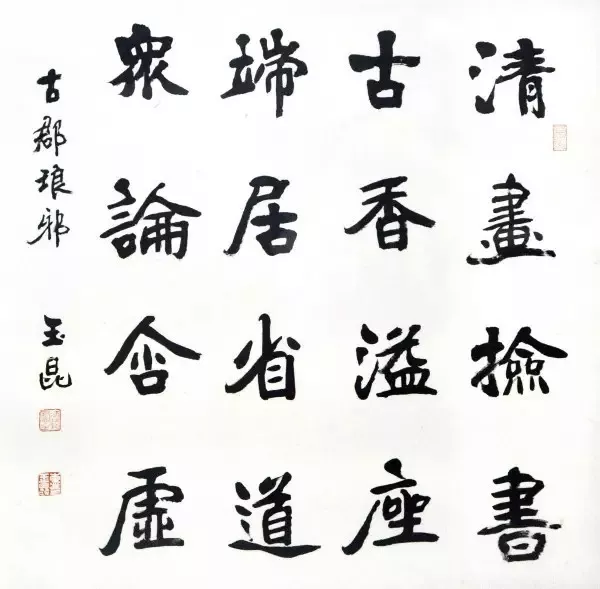 清畫撿書
古香溢座
端居省道
衆論含虛
古郡琅邪 玉昆